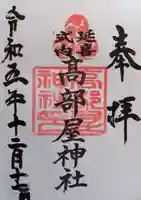 奉拝
延喜
式内
高部屋神社
高部屋
神社
令和五年十二月十七日